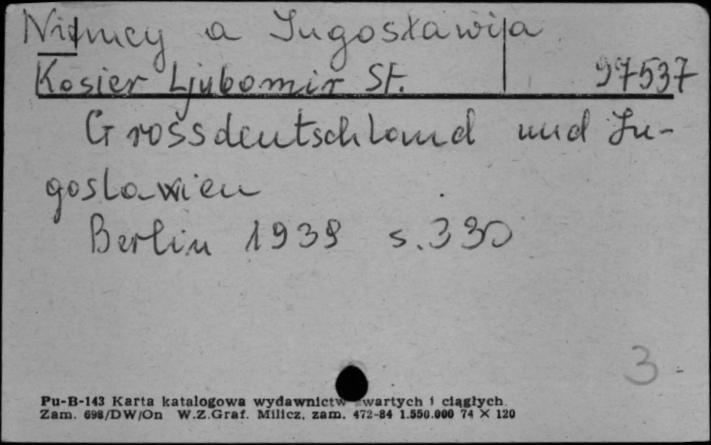 Niemcy a Jugosławija
Kosier Ljubomir St. 97537
Grossdeutschland und Ju-
goslawien
Berlin 1939 s. 330
3
Pu-B-143 Karta katalogowa wydawnictw zwartych i ciągłych
Zam. 698/DW/On W.Z.Graf. Milicz, zam. 472-84 1.550.000 74 × 120